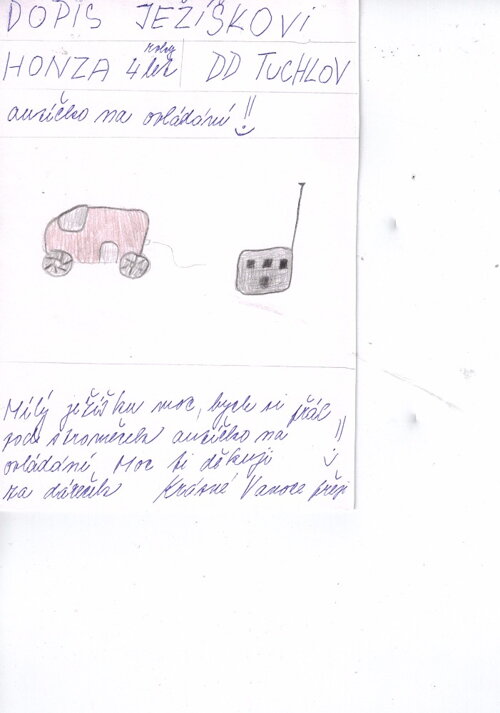 DOPIS JEŽÍŠKOVI
HONZA 4 let roky DD TUCHLOV
autíčko na ovládání !!
Milý ježíšku moc, bych si přál
pod stromeček autíčko na !!
ovládání, Moc ti děkuji
za dáreček Krásné Vanoce přeji